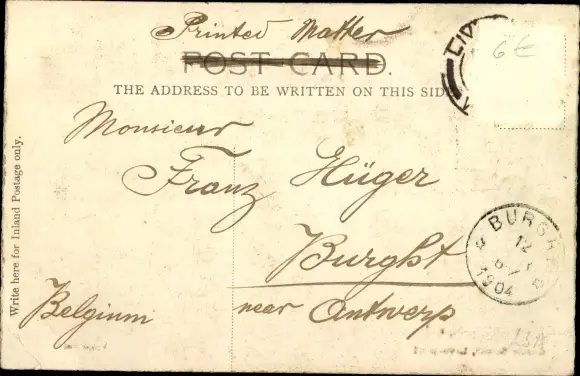 Printed Matter
POST CARD.
THE ADDRESS TO BE WRITTEN ON THIS SIDE
6€
Monsieur
Franz Hüger
Burght
near Antwerp
Belgium
Write here for Inland Postage only.
BURGH
12
1904